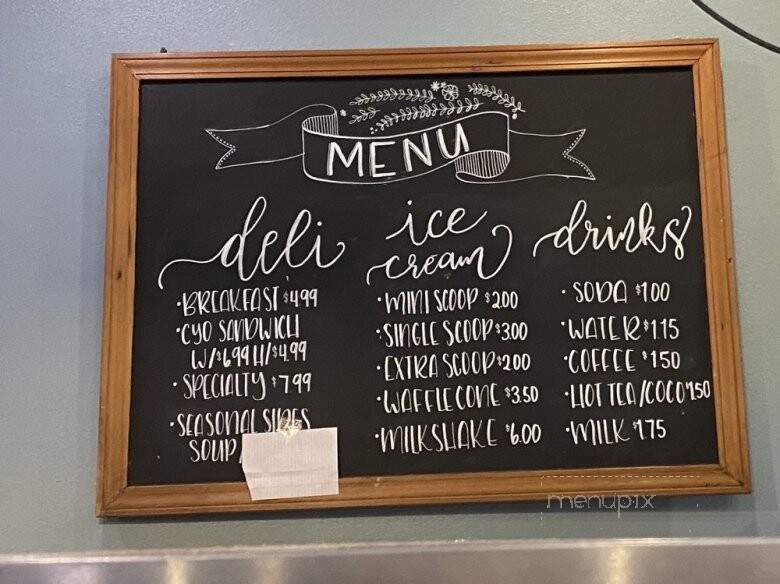 MENU
deli
• BREAKFAST $4.99
• CYO SANDWICH
W/$6.99 H/$4.99
• SPECIALTY $7.99
• SEASONAL SIDES
SOUP
ice
cream
• MINI SCOOP $2.00
• SINGLE SCOOP $3.00
• EXTRA SCOOP $2.00
• WAFFLE CONE $3.50
• MILKSHAKE $6.00
drinks
• SODA $1.00
• WATER $1.15
• COFFEE $1.50
• HOT TEA/COCO $1.50
• MILK $1.75
menupix